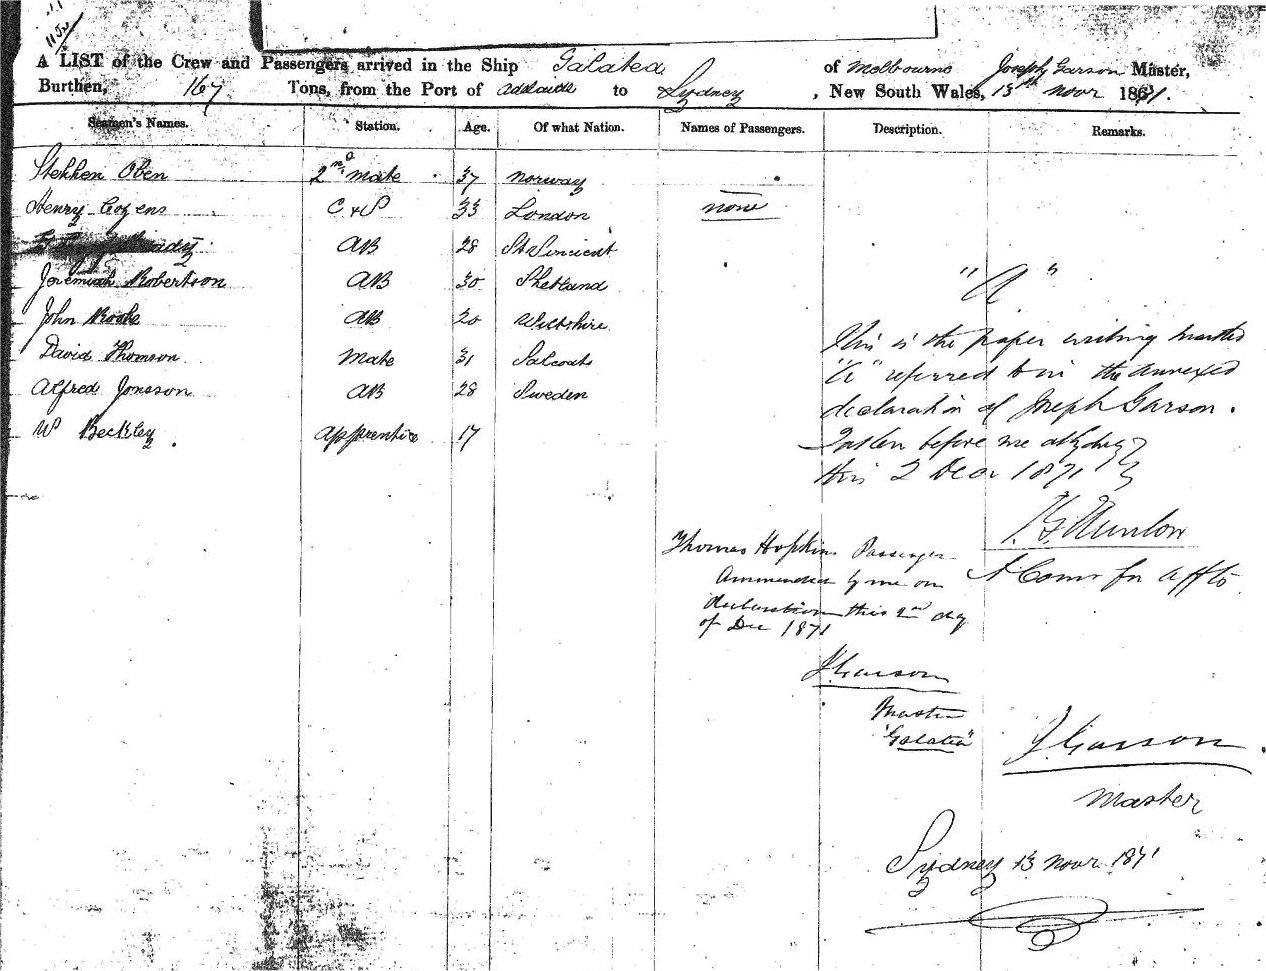 A LIST of the Crew and Passengers arrived in the Ship Galatea of Melbourne Joseph Garson Master,
Burthen, 167 Tons, from the Port of Adelaide to Sydney, New South Wales, 13th Novr 1871.
Seamen's Names. Station. Age. Of what Nation. Names of Passengers. Description. Remarks.
Stephen Oben 2nd Mate 37 Norway
Henry Cozens C & S 33 London none
AB 28 St Vincient
Jeremiah Robertson AB 30 Shetland
John AB 20 Wiltshire
David Thomson Mate 31 Salcoats
Alfred Jonsson AB 28 Sweden
W Beckley Apprentice 17
"A"
This is the paper writing marked
"A" referred to in the annexed
declaration of Joseph Garson.
Taken before me at Sydney
this 2 Decr 1871
A Comr for affts
Thomas Hopkins Passenger
Ammended by me on
declaration this 2nd day
of Dec 1871
J Garson
Master
"Galatea"
J Garson
Master
Sydney 13 Novr 1871